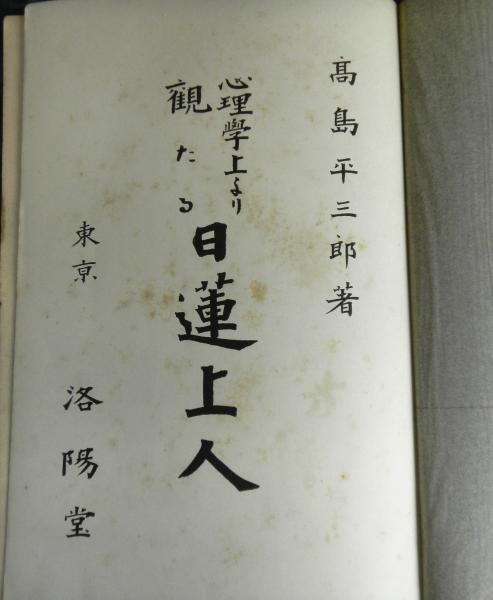 髙島平三郎著
心理學上より
観たる
日蓮上人
東京 洛陽堂